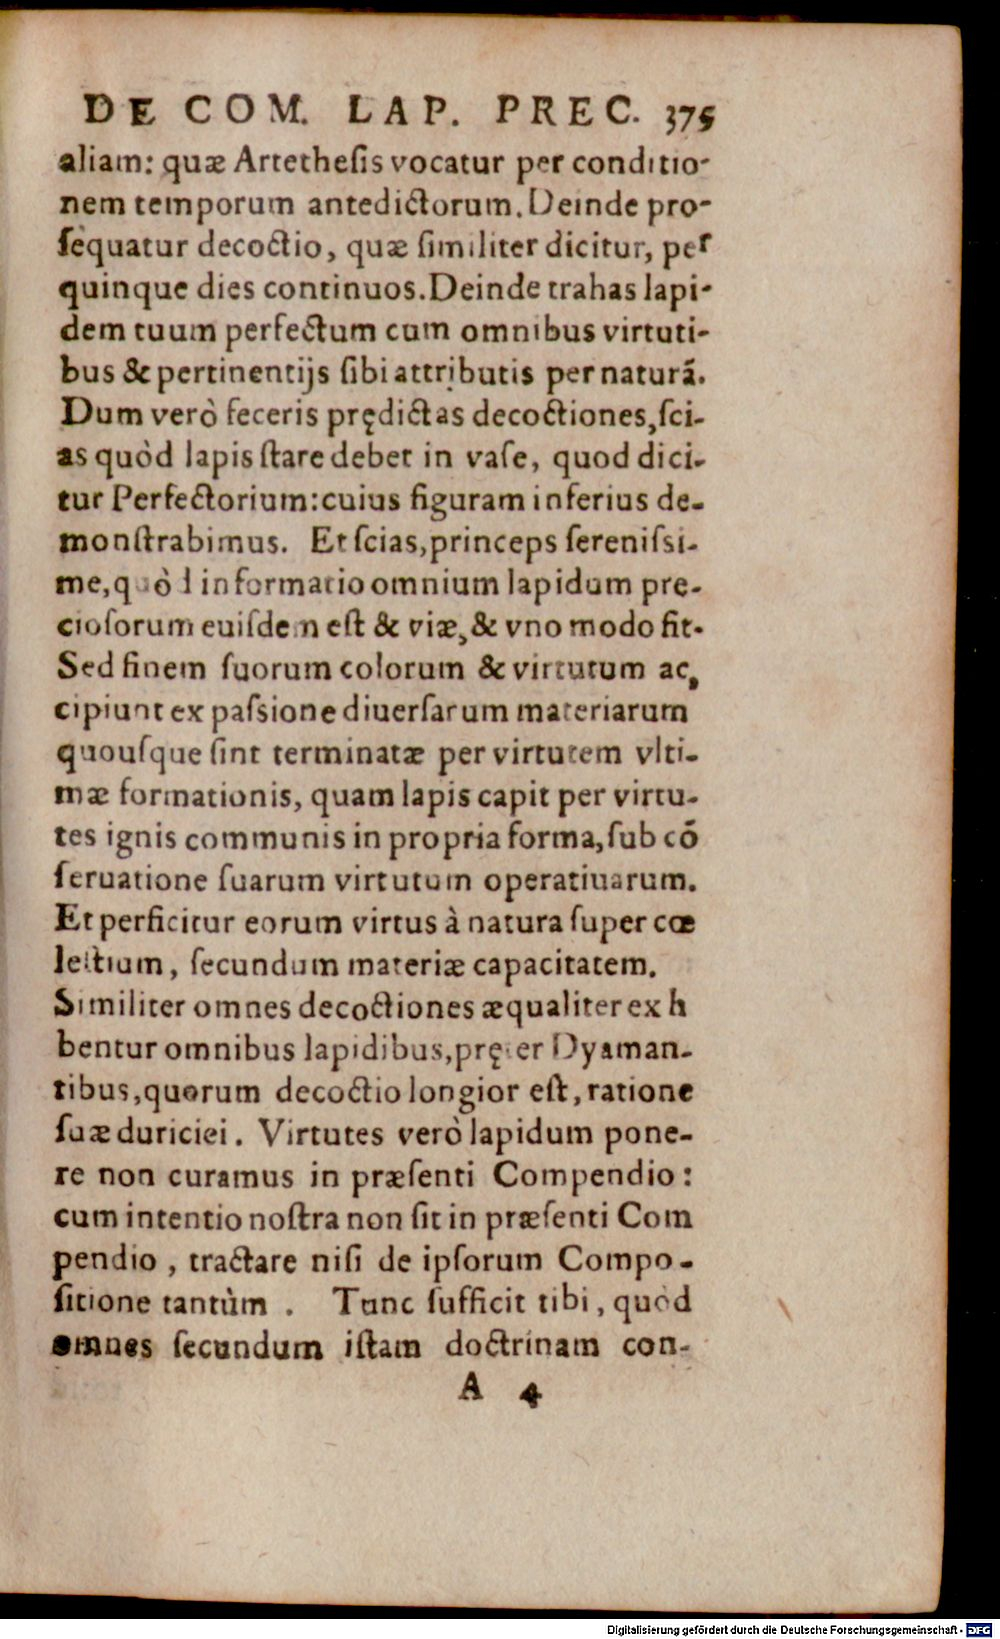 DE COM. LAP. PREC. 375
aliam: quæ Artetheſis vocatur per conditio-
nem temporum antedictorum. Deinde pro-
ſequatur decoctio, quæ ſimiliter dicitur, per
quinque dies continuos. Deinde trahas lapi-
dem tuum perfectum cum omnibus virtuti-
bus & pertinentijs ſibi attributis per naturã.
Dum verò feceris prędictas decoctiones, ſci-
as quòd lapis ſtare debet in vaſe, quod dici-
tur Perfectorium: cuius figuram inferius de-
monſtrabimus. Et ſcias, princeps ſereniſsi-
me, quòd informatio omnium lapidum pre-
cioſorum euiſdem eſt & viæ, & vno modo fit.
Sed finem ſuorum colorum & virtutum ac,
cipiunt ex paſsione diuerſarum materiarum
quouſque ſint terminatæ per virtutem vlti-
mæ formationis, quam lapis capit per virtu-
tes ignis communis in propria forma, ſub cõ
ſeruatione ſuarum virtutum operatiuarum.
Et perficitur eorum virtus à natura ſuper cœ
leſtium, ſecundum materiæ capacitatem.
Similiter omnes decoctiones æqualiter ex h
bentur omnibus lapidibus, pręter Dyaman-
tibus, quorum decoctio longior eſt, ratione
ſuæ duriciei. Virtutes verò lapidum pone-
re non curamus in præſenti Compendio:
cum intentio noſtra non ſit in præſenti Com
pendio, tractare niſi de ipſorum Compo-
ſitione tantùm. Tunc ſufficit tibi, quòd
omnes ſecundum iſtam doctrinam con-
A 4
Digitalisierung gefördert durch die Deutsche Forschungsgemeinschaft - DFG